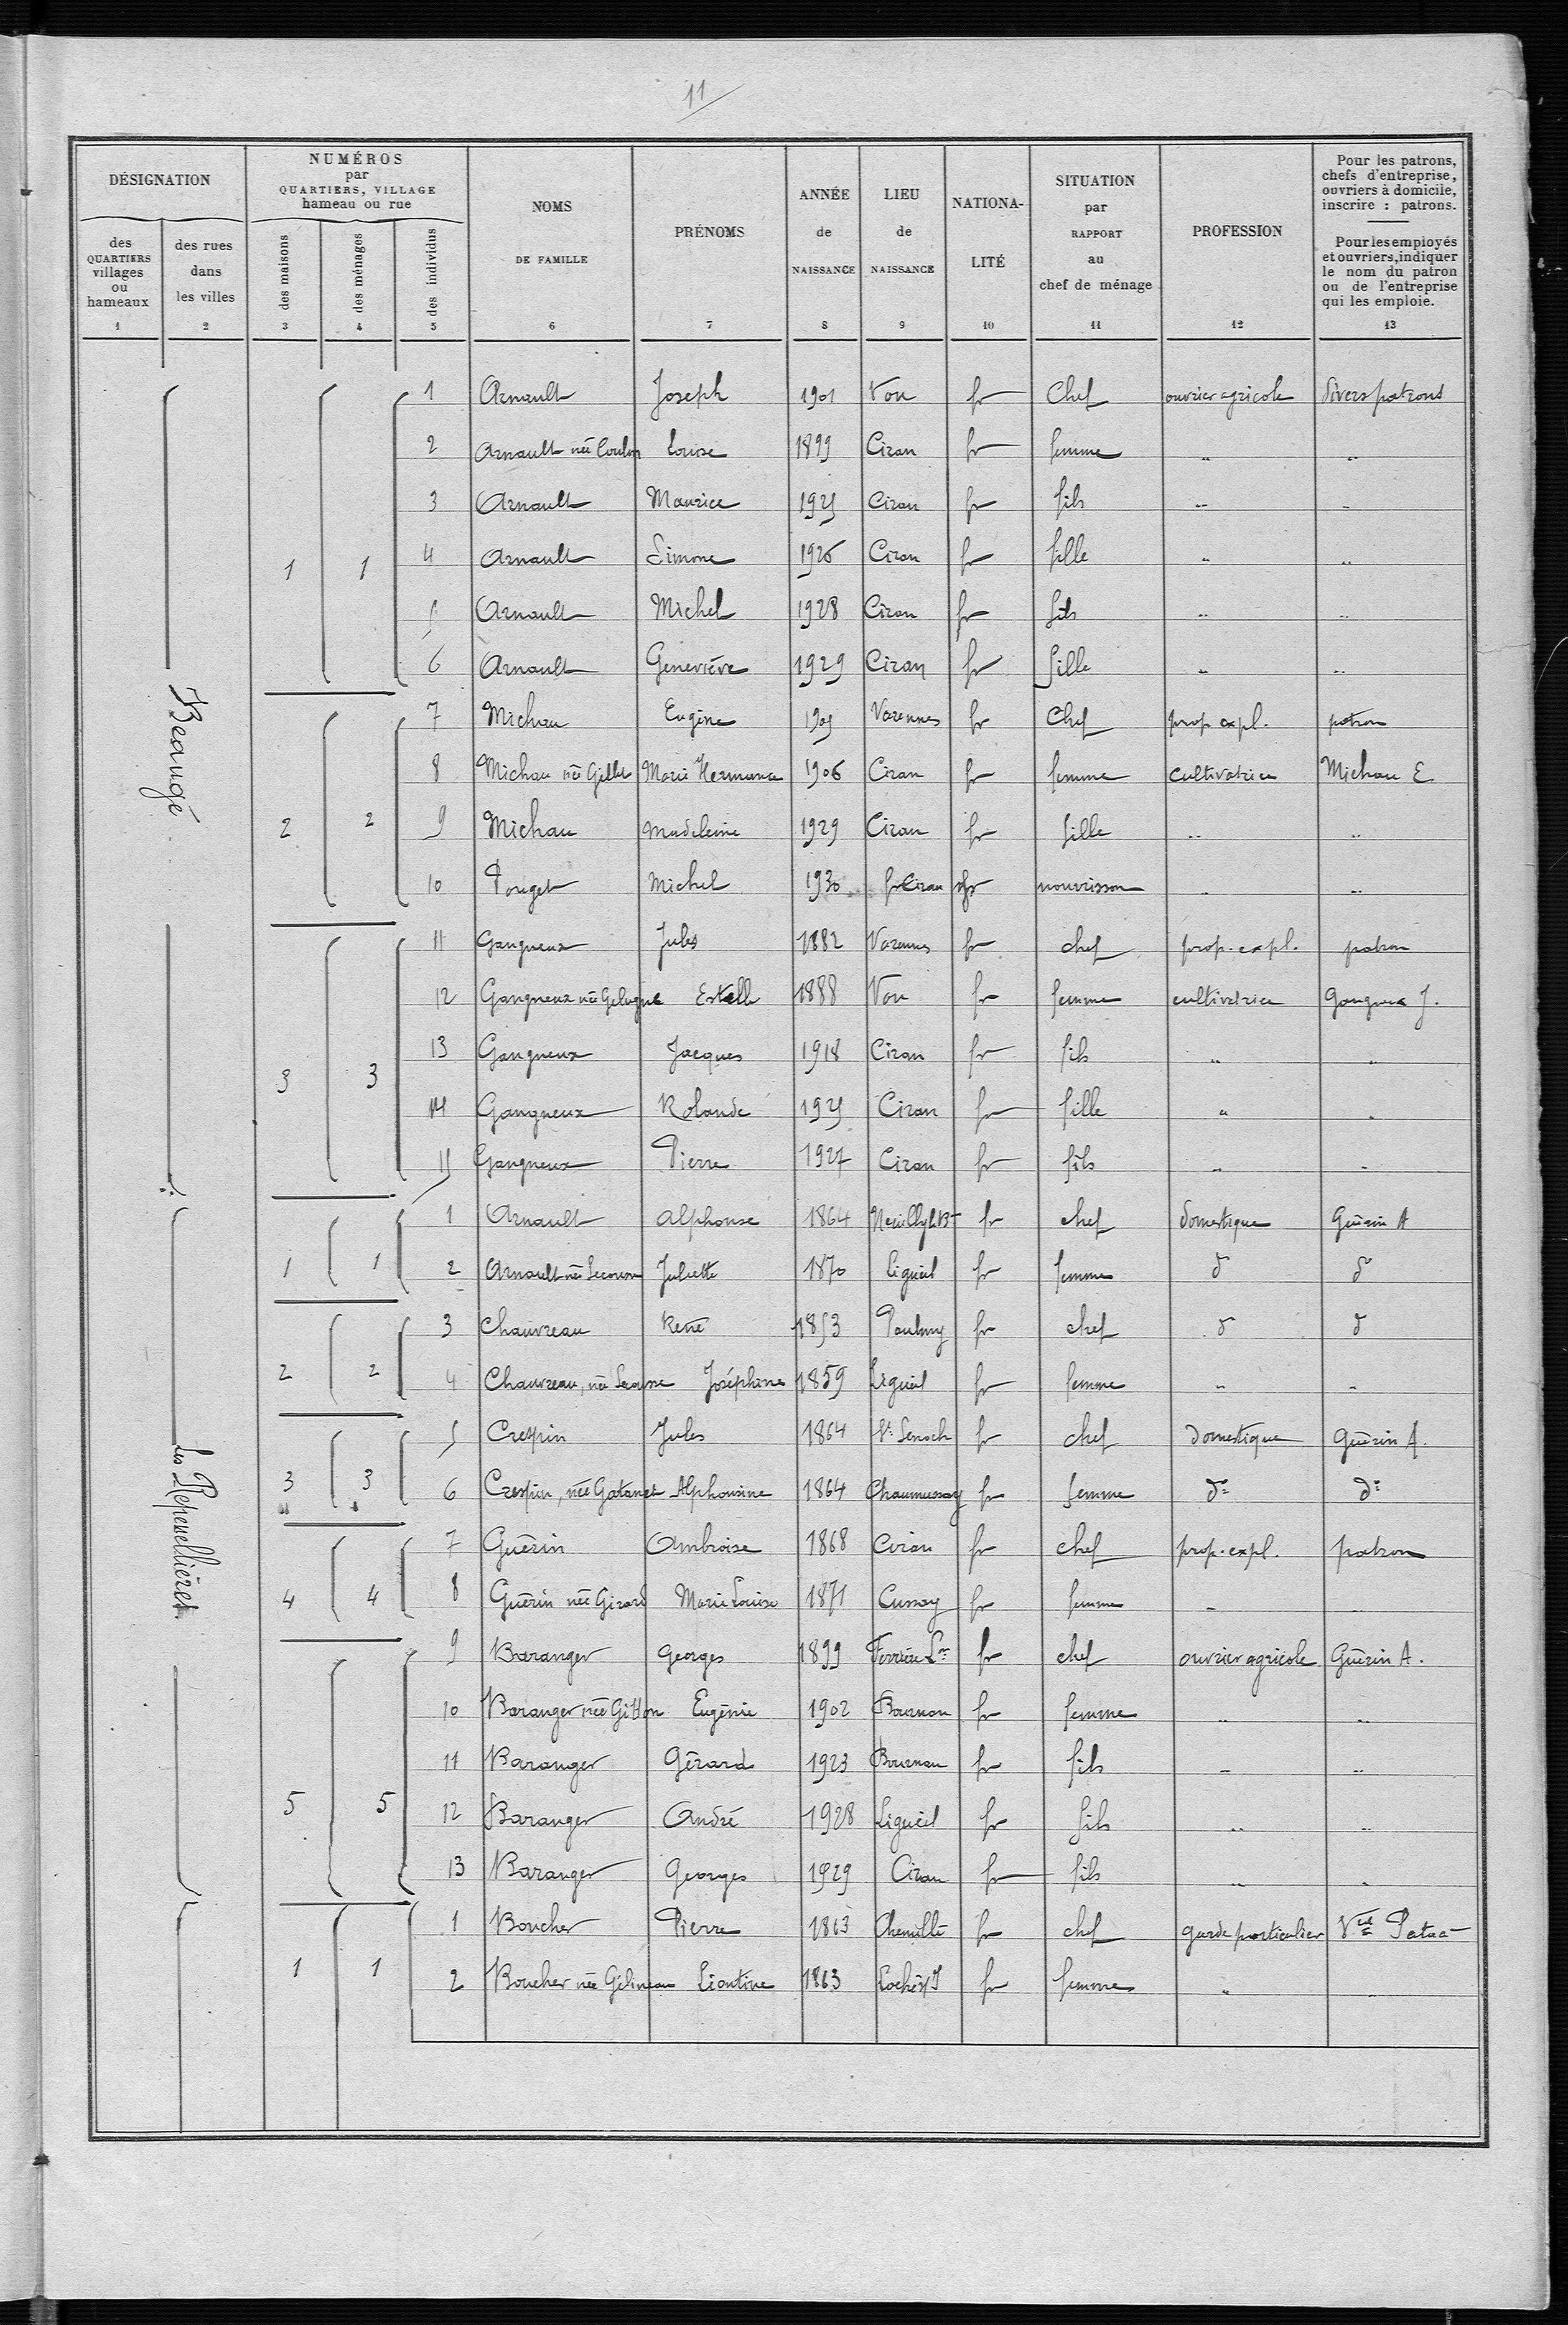 11
DÉSIGNATION
NUMÉROS
par
QUARTIERS, VILLAGE
hameau ou rue
NOMS
DE FAMILLE
PRÉNOMS
ANNÉE
de
NAISSANCE
LIEU
de
NAISSANCE
NATIONA-
LITÉ
SITUATION
par
RAPPORT
au
chef de ménage
PROFESSION
Pour les patrons,
chefs d'entreprise,
ouvriers à domicile,
inscrire : patrons.
Pour les employés
et ouvriers, indiquer
le nom du patron
ou de l'entreprise
qui les emploie.
des
QUARTIERS
villages
ou
hameaux
des rues
dans
les villes
des maisons
des ménages
des individus
1 2 3 4 5 6 7 8 9 10 11 12 13
Beaugé
1 1
1 Arnault Joseph 1901 Vou fr Chef ouvrier agricole divers patrons
2 Arnault née Coulon Louise 1899 Ciran fr femme " "
3 Arnault Maurice 1925 Ciran fr fils " "
4 Arnault Simone 1926 Ciran fr fille " "
5 Arnault Michel 1928 Ciran fr fils " "
6 Arnault Geneviève 1929 Ciran fr fille " "
2 2
7 Michau Eugène 1905 Varennes fr Chef prop expl. patron
8 Michau née Gillet Marie Hermance 1906 Ciran fr femme cultivatrice Michau E
9 Michau Madeleine 1929 Ciran fr fille " "
10 Pouget Michel 1930 Ciran fr nourrisson " "
3 3
11 Gangneux Jules 1882 Varennes fr chef prop. expl. patron
12 Gangneux née Estelle 1888 Vou fr femme cultivatrice Gangneux J.
13 Gangneux Jacques 1918 Ciran fr fils " "
14 Gangneux Rolande 1925 Ciran fr fille " "
15 Gangneux Pierre 1927 Ciran fr fils " "
Les Repenellières
1 1
1 Arnault Alphonse 1864 Neuilly le B fr chef domestique Guérin A
2 Arnault née Juliette 1870 Ligueil fr femme d° d°
2 2
3 Chauvreau René 1853 Paulmy fr chef d° d°
4 Chauvreau, née Joséphine 1859 Ligueil fr femme " "
3 3
5 Crespin Jules 1864 St Senoch fr chef domestique Guérin A.
6 Crespin, née Gatanet Alphonsine 1864 Chaumussay fr femme d° d°
4 4
7 Guérin Ambroise 1868 Ciran fr chef prop. expl. patron
8 Guérin née Girard Marie Louise 1871 Cussay fr femme " "
5 5
9 Baranger Georges 1899 Ferrière Lon fr chef ouvrier agricole Guérin A.
10 Baranger née Gitton Eugénie 1902 Bournan fr femme " "
11 Baranger Gérard 1923 Bournan fr fils " "
12 Baranger André 1928 Ligueil fr fils " "
13 Baranger Georges 1929 Ciran fr fils " "
1 1
1 Boucher Pierre 1863 Chemillé fr chef garde particulier Vve
2 Boucher née Gélineau Léontine 1863 Loché s/I fr femme " "